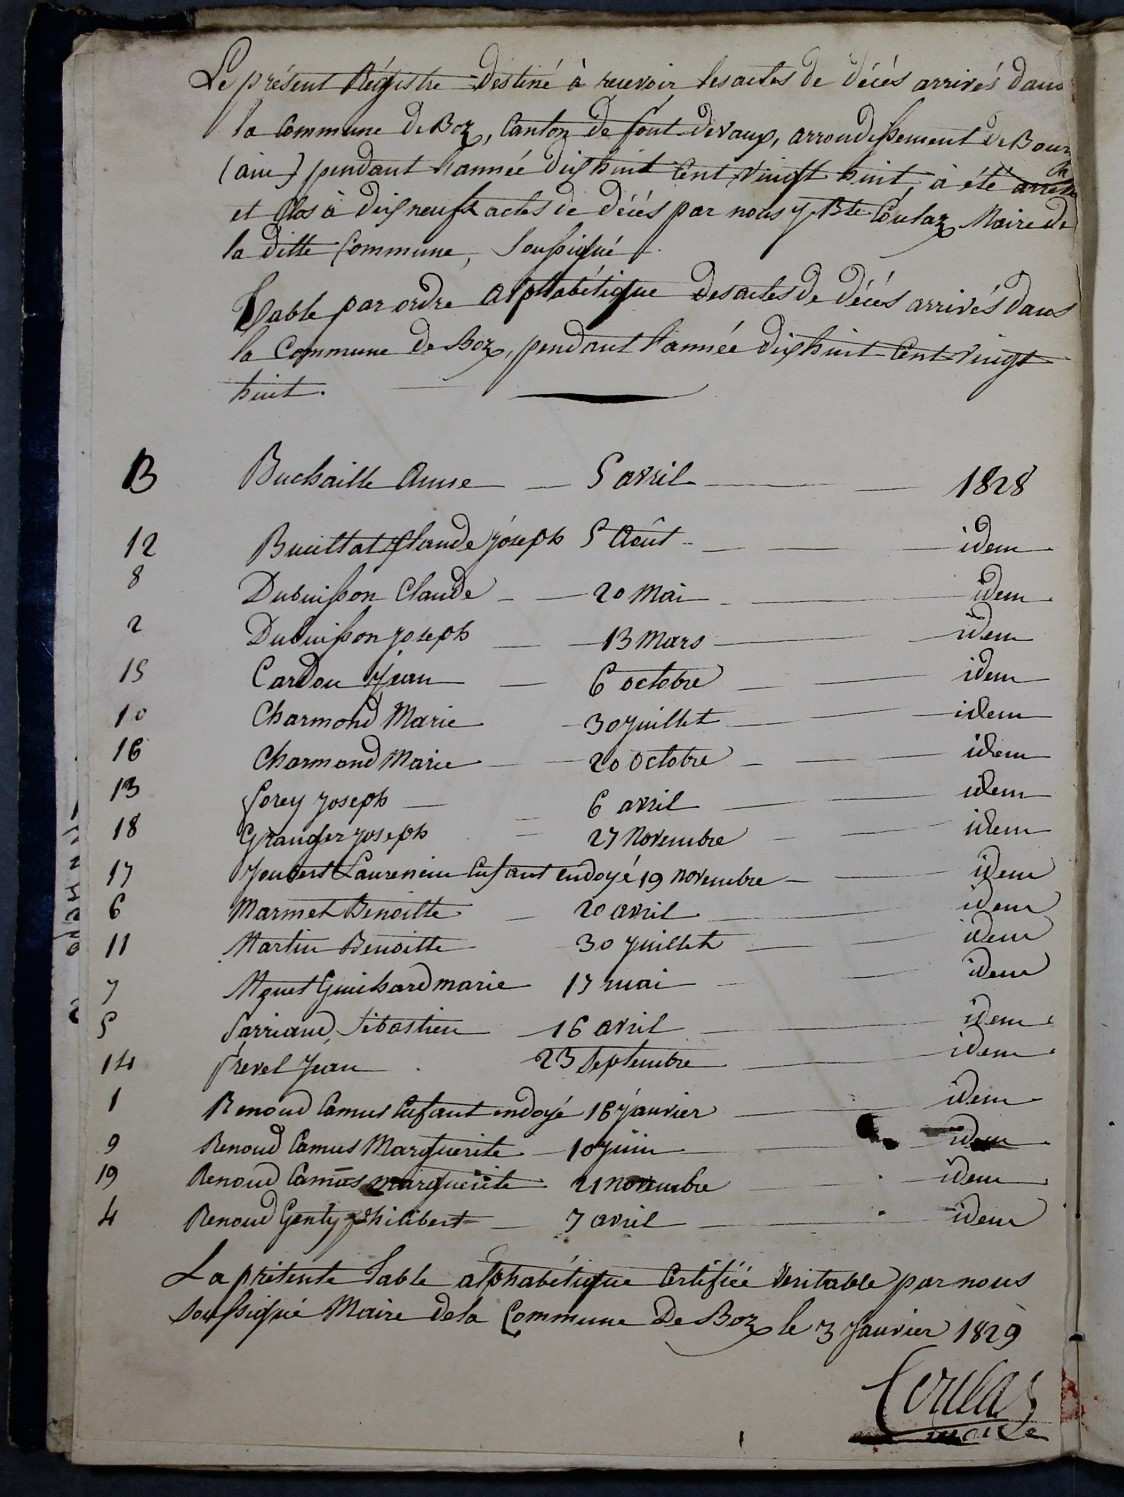 Le présent Régistre destiné à recevoir les actes de décés arrivés dans
la Commune de Boz, Canton de pont-devaux, arrondissement de Bourg
(ain) pendant l'année dix huit Cent Vingt huit, à été arrêté
et Clos à dix neuf actes de décés par nous J. Bte Coulaz Maire de
la ditte Commune, Soussigné.
Table par ordre alphabétique des actes de décés arrivés dans
la Commune de Boz, pendant l'année dix huit Cent vingt
huit.
B Buchaille Anne 5 avril 1828
12 Claude Joseph 5 Août idem
8 Dubuisson Claude 20 Mai idem
2 Dubuisson Joseph 13 Mars idem
15 Cardou Jean 6 octobre idem
10 Charmond Marie 30 Juillet idem
16 Charmond Marie 20 octobre idem
13 Joseph 6 avril idem
18 Granger Joseph 27 Novembre idem
17 Joubert Laurencin Enfant endoyé 19 novembre idem
6 Marmet Benoitte 20 avril idem
11 Martin Benoitte 30 Juillet idem
7 Guichard marie 17 mai idem
5 Parriaud Sébastien 16 avril idem
14 Prevel Jean 23 Septembre idem
1 Renoud Camus Enfant endoyé 16 janvier idem
9 Renoud Camus Marguerite 10 juin idem
19 Renoud Camus marguerite 21 novembre idem
4 Renoud Genty philibert 7 avril idem
La présente Table alphabétique Certifiée Veritable par nous
Soussigné Maire de la Commune De Boz le 3 Janvier 1829
Coulaz
maire